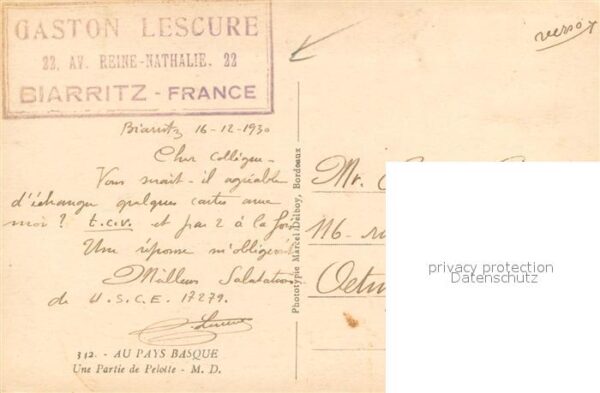 GASTON LESCURE
22, AV. REINE-NATHALIE, 22
BIARRITZ - FRANCE
verso
Biarritz 16-12-1930
Cher collègue -
Vous serait-il agréable
d'échanger quelques cartes avec
moi ? t.c.v. et par 2 à la fois
Une réponse m'obligerait
Meilleurs Salutations
de U.S.C.E. 17279.
312. - AU PAYS BASQUE
Une Partie de Pelotte - M. D.
Phototypie Marcel Delboy, Bordeaux
Mr.
116 -
privacy protection
Datenschutz